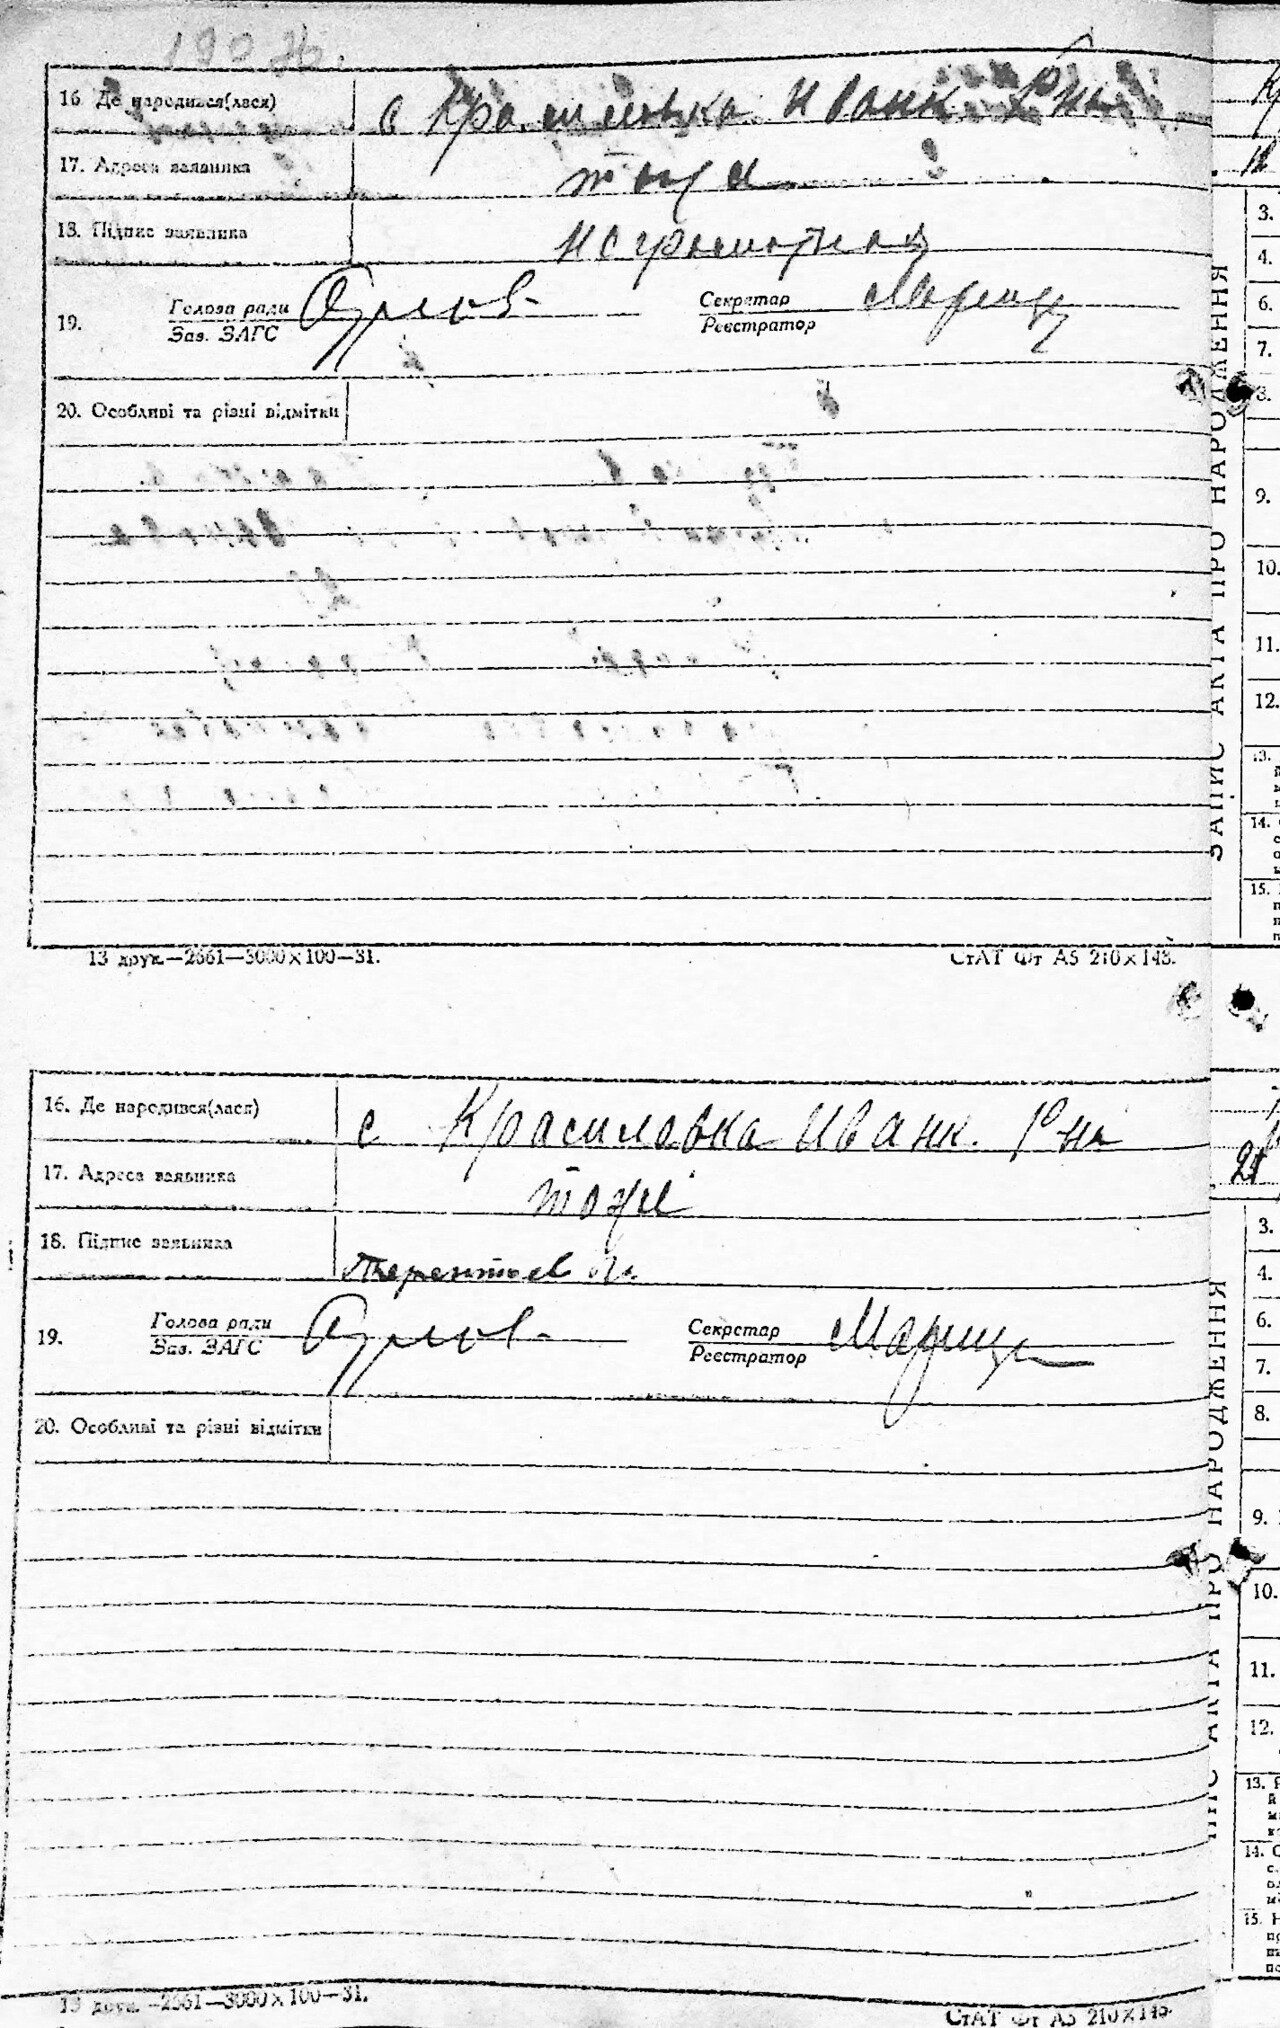 16. Де народився(лася)
с Красиловка Иванк Р-на
17. Адреса заявника
тоже
18. Підпис заявника
неграмотная
19. Голова ради
Зав. ЗАГС
Секретар
Реєстратор
20. Особливі та різні відмітки
13 друк.—2661—3000×100—31.
СтАТ Фт А5 210×148.
16. Де народився(лася)
с Красиловка Иванк. Р-на
17. Адреса заявника
тоже
18. Підпис заявника
Терентьев
19. Голова ради
Зав. ЗАГС
Секретар
Реєстратор
20. Особливі та різні відмітки
13 друк.—2661—3000×100—31.
СтАТ Фт А5 210×148
ЗАПИС АКТА ПРО НАРОДЖЕННЯ
3.
4.
6.
7.
8.
9.
10.
11.
12.
13.
14.
15.
ПИС АКТА ПРО НАРОДЖЕННЯ
21
3.
4.
6.
7.
8.
9.
10.
11.
12.
13.
14.
15.